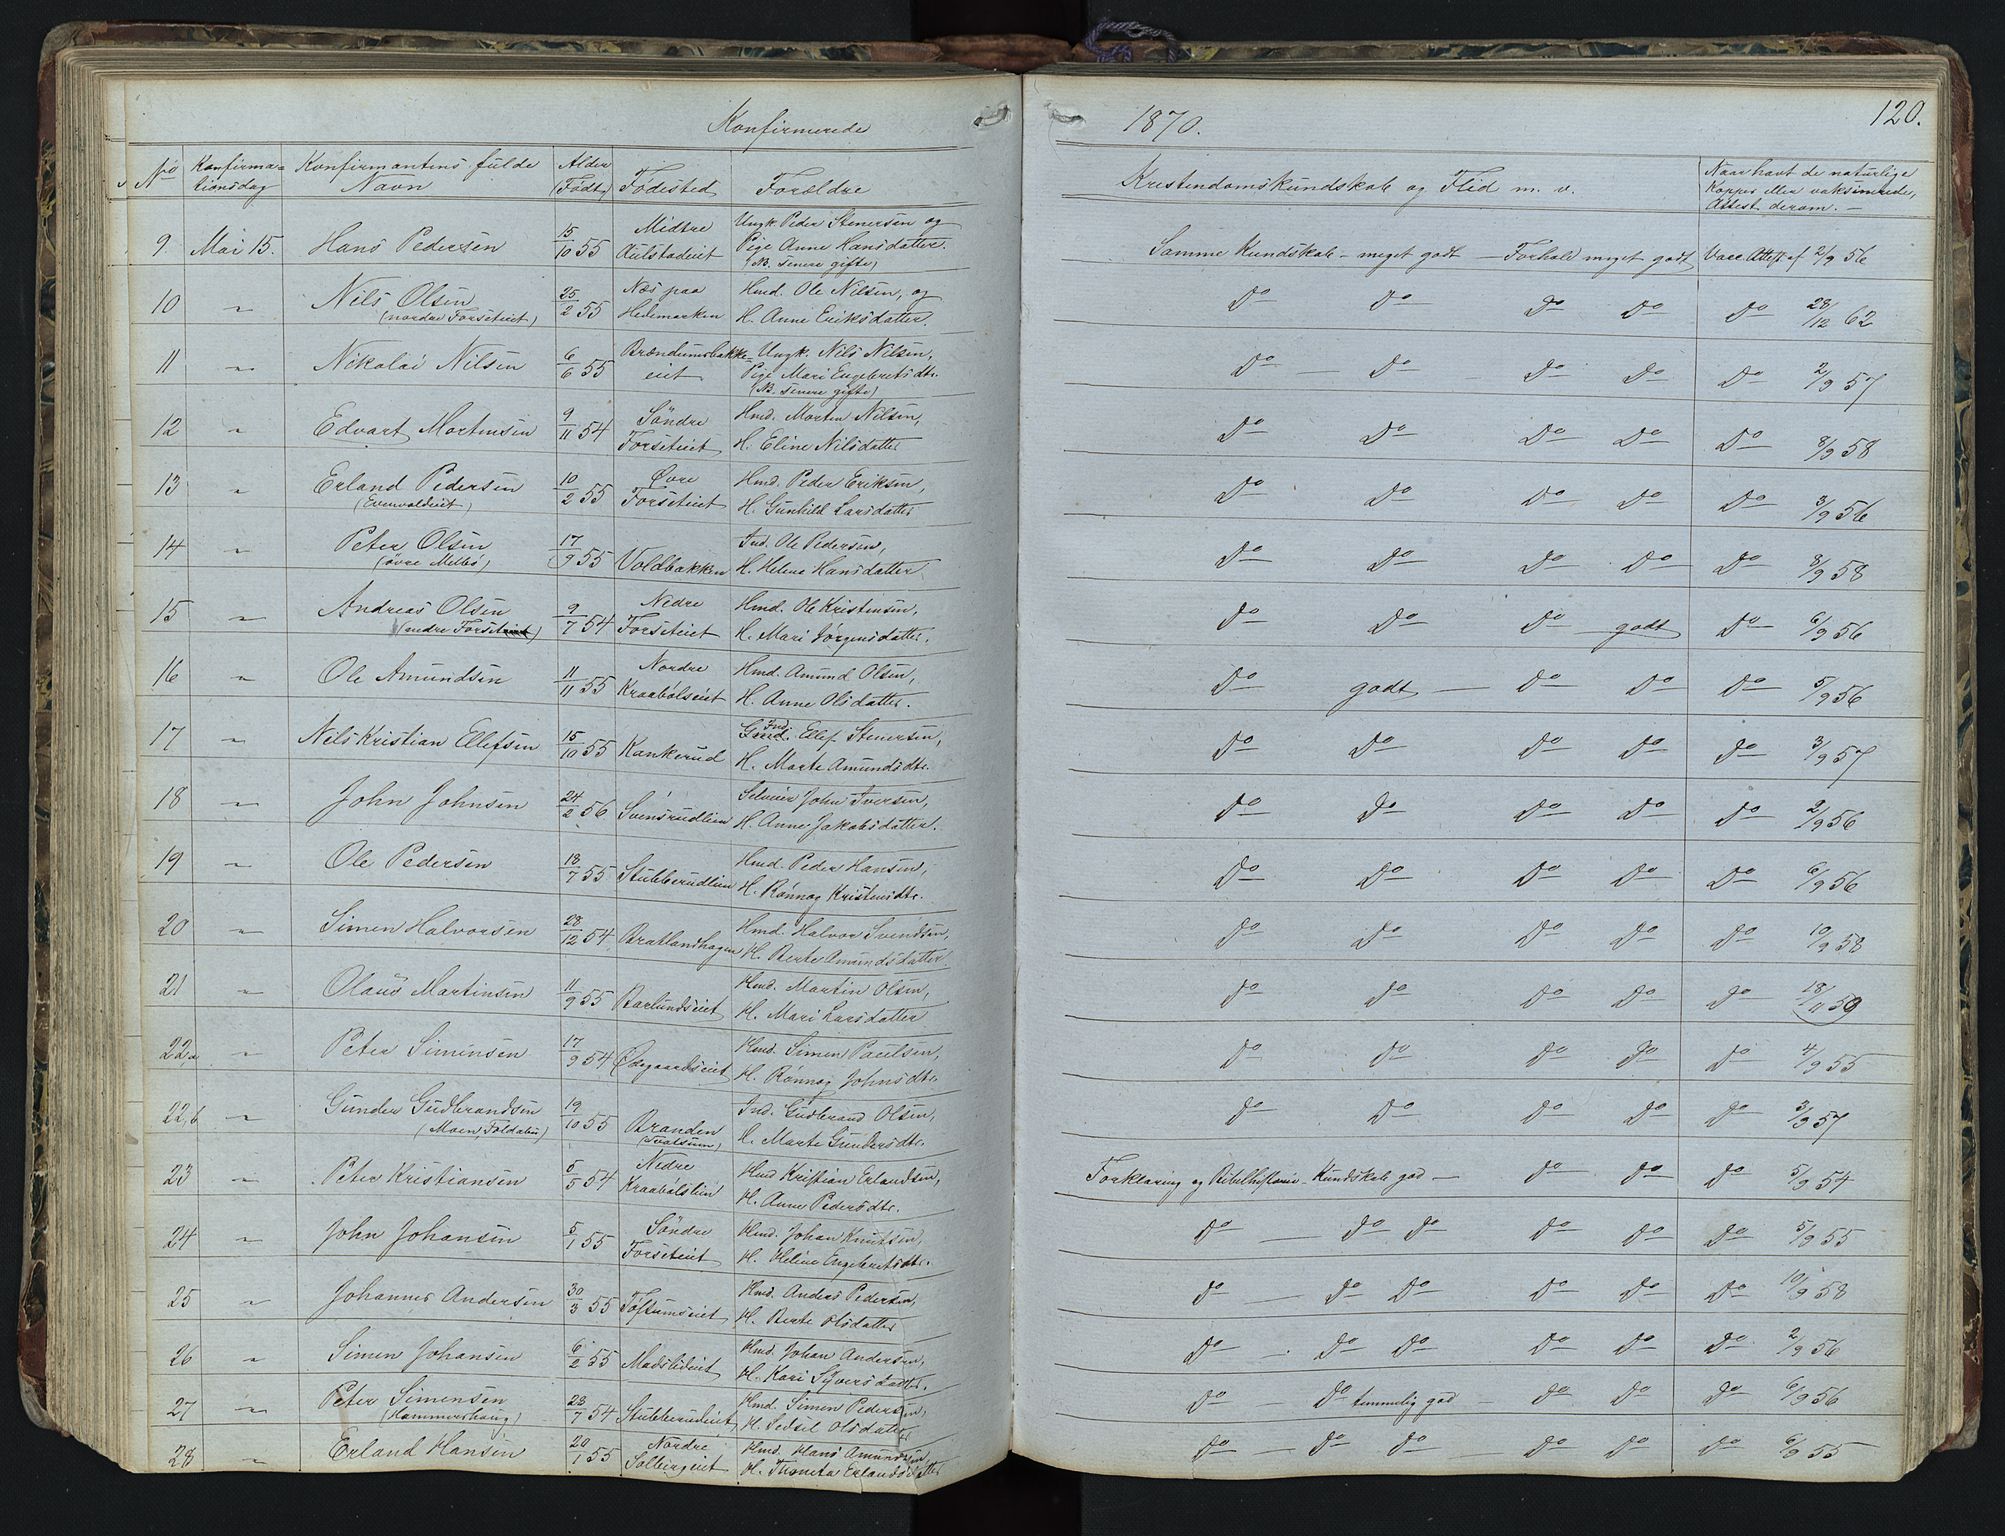 Konfirmerede 1870. 120.
No Konfirmationsdag Konfirmantens fulde Navn Alder (Født) Fødested Forældre Kristendomskundskab og Flid m. v. Naar havt de naturlige Kopper eller vaksinerede, Attest derom. —
9 Mai 15. Hans Pedersen 15/10 55 Midtre Aulstadeiet Ungk. Peder Stenersen og Pige Anne Hansdatter. (NB. senere gifte) Samme Kundskab – meget godt – Forhold meget godt Vacc. Attest af 2/9 56
10 " Nils Olsen (nordre Forseteiet) 25/2 55 Næs paa Hedemarken Hmd. Ole Nilsen, og H. Anne Eriksdatter. Do Do Do Do Do 28/12 62
11 " Nikolai Nilsen 6/6 55 Brændumsbakkeeiet Ungk. Nils Nilsen, Pige Mari Engebretsdtr. (NB. senere gifte) Do Do Do Do Do 2/9 57
12 " Edvart Mortensen 9/11 54 Söndre Forseteiet Hmd. Morten Nilsen, H. Eline Nilsdatter Do Do Do Do Do 8/9 58
13 " Erland Pedersen 10/2 55 Øvre Forseteiet Hmd. Peder Eriksen, H. Gunhild Larsdatter Do Do Do Do Do 3/9 56
14 " Peter Olsen (övre Melbö) 17/9 55 Voldbakken Ind. Ole Pedersen, H. Helene Hansdatter Do Do Do Do Do 8/9 58
15 " Andreas Olsen (nedre Forset) 9/7 54 Nedre Forseteiet Hmd. Ole Kristensen, H. Mari Jörgensdatter. Do Do Do godt Do 6/9 56
16 " Ole Amundsen 11/11 55 Nordre Kraabölseiet Hmd. Amund Olsen, H. Anne Olsdatter. Do godt — Do Do Do 5/9 56
17 " Nils Kristian Ellefsen 15/10 55 Kankerud Ind. Ellef Stenersen, H. Marte Amundsdtr. Do Do Do Do Do 3/9 57
18 " John Johnsen 24/2 56 Svensrudlien Selveier John Iversen, H. Anne Jakobsdatter. Do Do Do Do Do 2/9 56
19 " Ole Pedersen 18/7 55 Stubberudlien Hmd. Peder Hansen, H. Rönnog Kristensdtr. Do Do Do Do Do 6/9 56
20 " Simen Halvorsen 28/12 54 Bratlandhagen Hmd. Halvor Svendsen, H. Berte Amundsdatter Do Do Do Do Do 10/9 58
21 " Olaus Martinsen 11/9 55 Barlundseiet Hmd. Martin Olsen, H. Mari Larsdatter Do Do Do Do Do 18/11 59
22,a " Peter Simensen 17/9 54 Ødegaardseiet Hmd. Simen Paulsen, H. Rönnog Johnsdtr. Do Do Do Do Do 4/9 55
22,b " Gunder Gudbrandsen (Moen, Foldalen) 19/10 55 Branden (Svatsum) Ind. Gudbrand Olsen, H. Marte Gundersdtr. Do Do Do Do Do 3/9 57
23 " Peter Kristiansen 5/5 54 Nedre Kraabölslien Hmd Kristian Erlandsen, H. Anne Pedersdtr. Forklaring og Bibelhistorie – Kundskab god – Do Do Do 5/9 54
24 " John Johansen 5/1 55 Söndre Forseteiet Hmd. Johan Knutsen, H. Helene Engebretsdtr. Do — Do Do Do Do Do 5/9 55
25 " Johannes Andersen 30/3 55 Töftumseiet Hmd. Anders Pedersen, H. Berte Olsdatter Do — Do Do Do Do Do 10/9 58
26 " Simen Johansen 6/2 55 Madslieiet Hmd. Johan Andersen, H. Kari Syversdatter. Do — Do Do Do Do Do 2/9 56
27 " Peter Simensen (Hammershoug) 28/7 54 Stubberudeiet Hmd. Simen Pedersen, H. Sidsel Olsdatter Do — Do temmelig god — Do Do Do 6/9 56
28 " Erland Hansen 20/1 55 Nordre Solbergeiet Hmd. Hans Amundsen H. Thoneta Erlandsdatter Do — Do Do Do Do Do 6/9 55